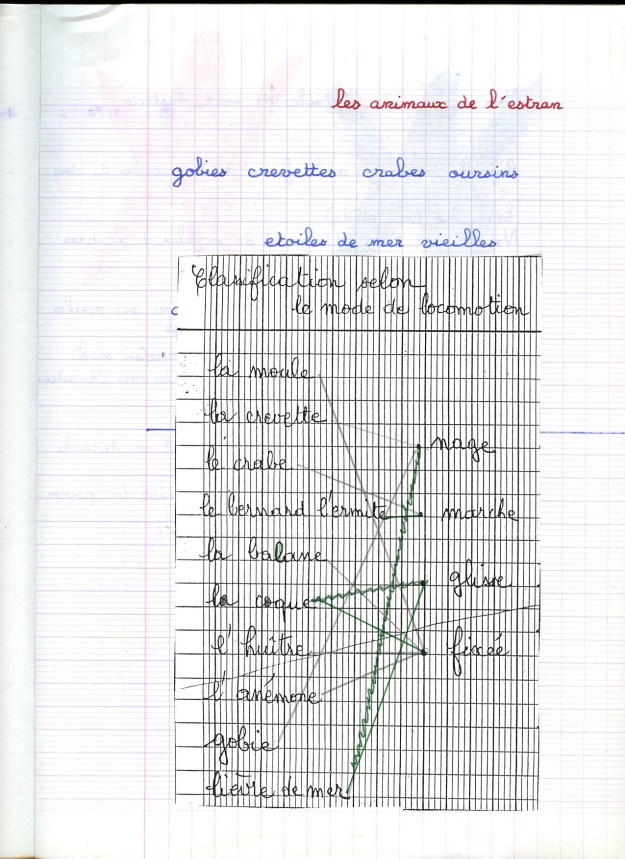 les animaux de l'estran
gobies crevettes crabes oursins
etoiles de mer vieilles
Classification selon
le mode de locomotion
la moule
la crevette
nage
le crabe
le bernard l'ermite marche
la balane
glisse
la coque
l'huître fixée
l'anémone
gobie
lièvre de mer